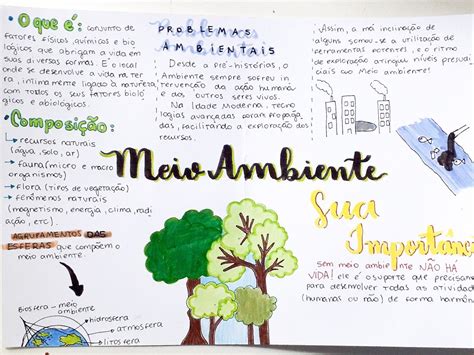 O que é: conjunto de
fatores físicos, químicos e bio
lógicos que abrigam a vida em
suas diversas formas. É o local
onde se desenvolve a vida na ter
ra, intimamente ligado à natureza
com todos os seus fatores bioló
gicos e abiológicos.
Composição:
→ recursos naturais
(água, solo, ar)
→ fauna (micro e macro
organismos)
→ flora (tipos de vegetação)
→ fenômenos naturais
(magnetismo, energia, clima, radi
ação, etc)
AGRUPAMENTOS DAS
ESFERAS que compõem o
meio ambiente.
Biosfera – meio
ambiente
hidrosfera
atmosfera
litosfera
PROBLEMAS
AMBIENTAIS
Desde a pré-histórios, o
Ambiente sempre sofreu in
tervenção da ação humana
e dos outros seres vivos.
Na Idade Moderna, tecno
logias avançadas foram propaga
das, facilitando a exploração dos
recursos.
Assim, a má inclinação de
alguns somou-se a utilização de
ferramentas potentes, e o ritmo
de exploração atingiu níveis prejudi
ciais ao Meio ambiente!
Meio Ambiente
Sua
Importânc
sem meio ambiente NÃO HÁ
VIDA! ele é o suporte que precisam
para desenvolver todas as atividad
(humanas ou não) de forma harmôn